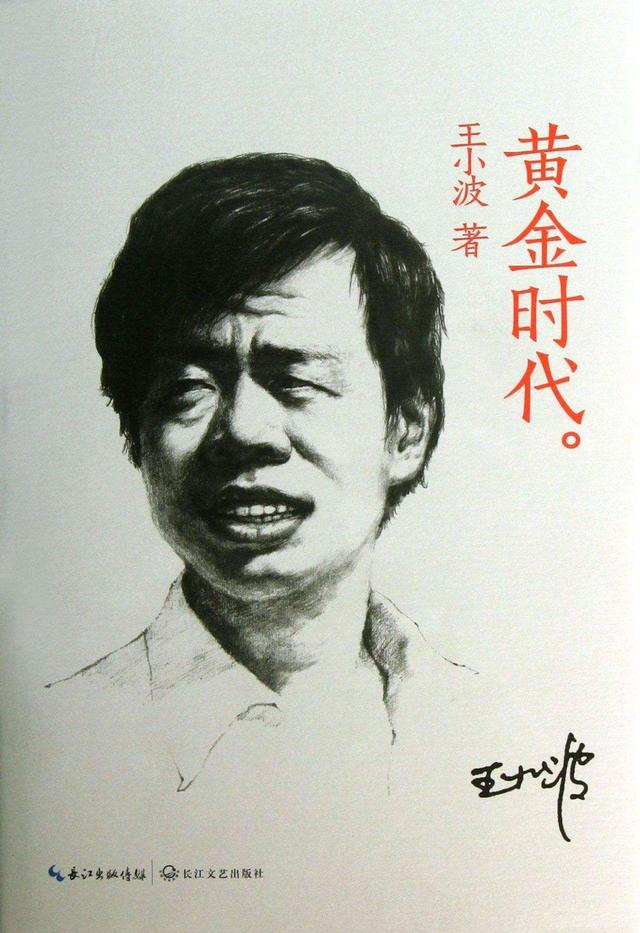 黄金时代。
王小波 著
王小波
长江出版传媒 长江文艺出版社